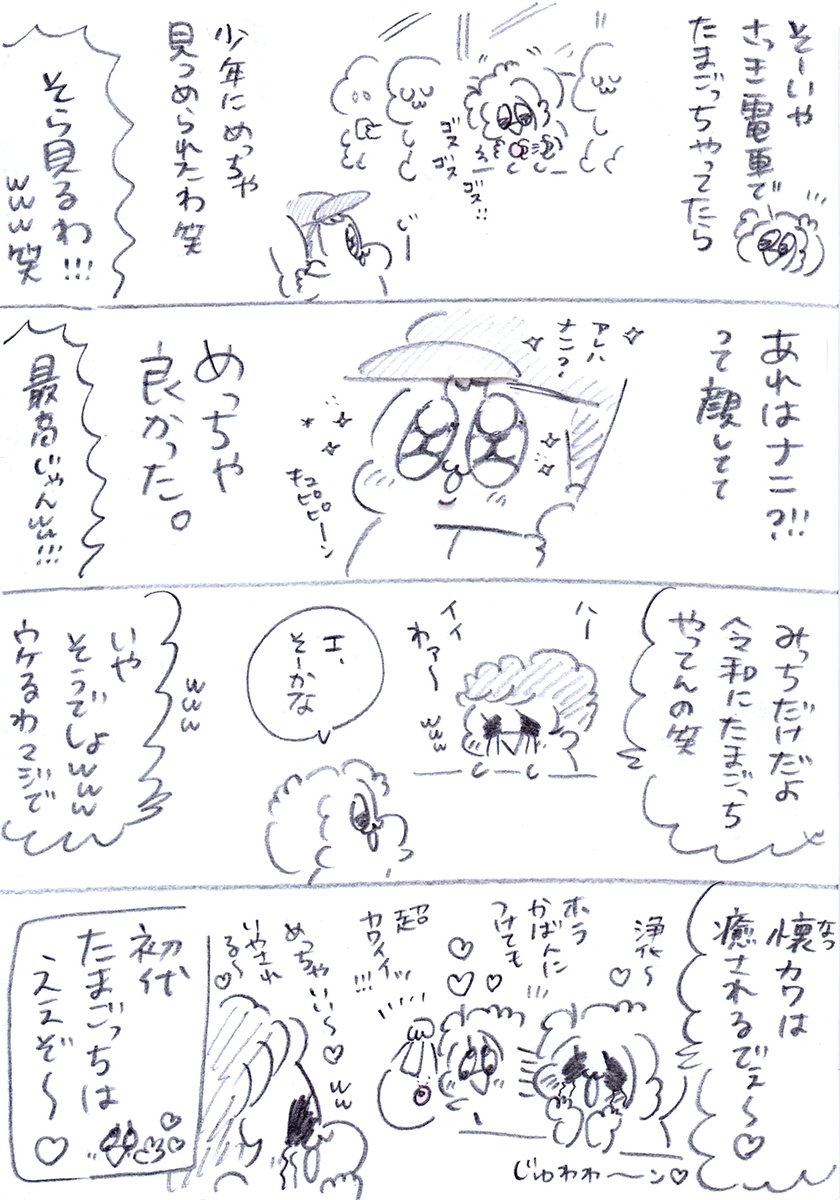 そーいや
さっき電車で
たまごっちやってたら
ゴス
ゴス
ゴス‥
少年にめっちゃ
見つめられたわ笑
じー
そら見るわ!!!
www笑
あれはナニ?!!!
って顔してて
アレハ
ナニ?
キュピピーン
めっちゃ
良かった。
最高じゃんww!!!
みっちだけだよ
令和にたまごっち
やってんの笑
ハー
イイ
わァ〜
www
エ、
そーかな
www
いや
そうでしょwww
ウケるわマジで
懐カワは
なつ
癒されるでぇ〜♡
浄化〜
♡
ホラ
かばんに
つけても
超
カワイイッ
!!!
じゅわわ〜ン♡
めっちゃいい〜♡ww
いやされ
る〜♡
初代
たまごっちは
ええぞ〜♡